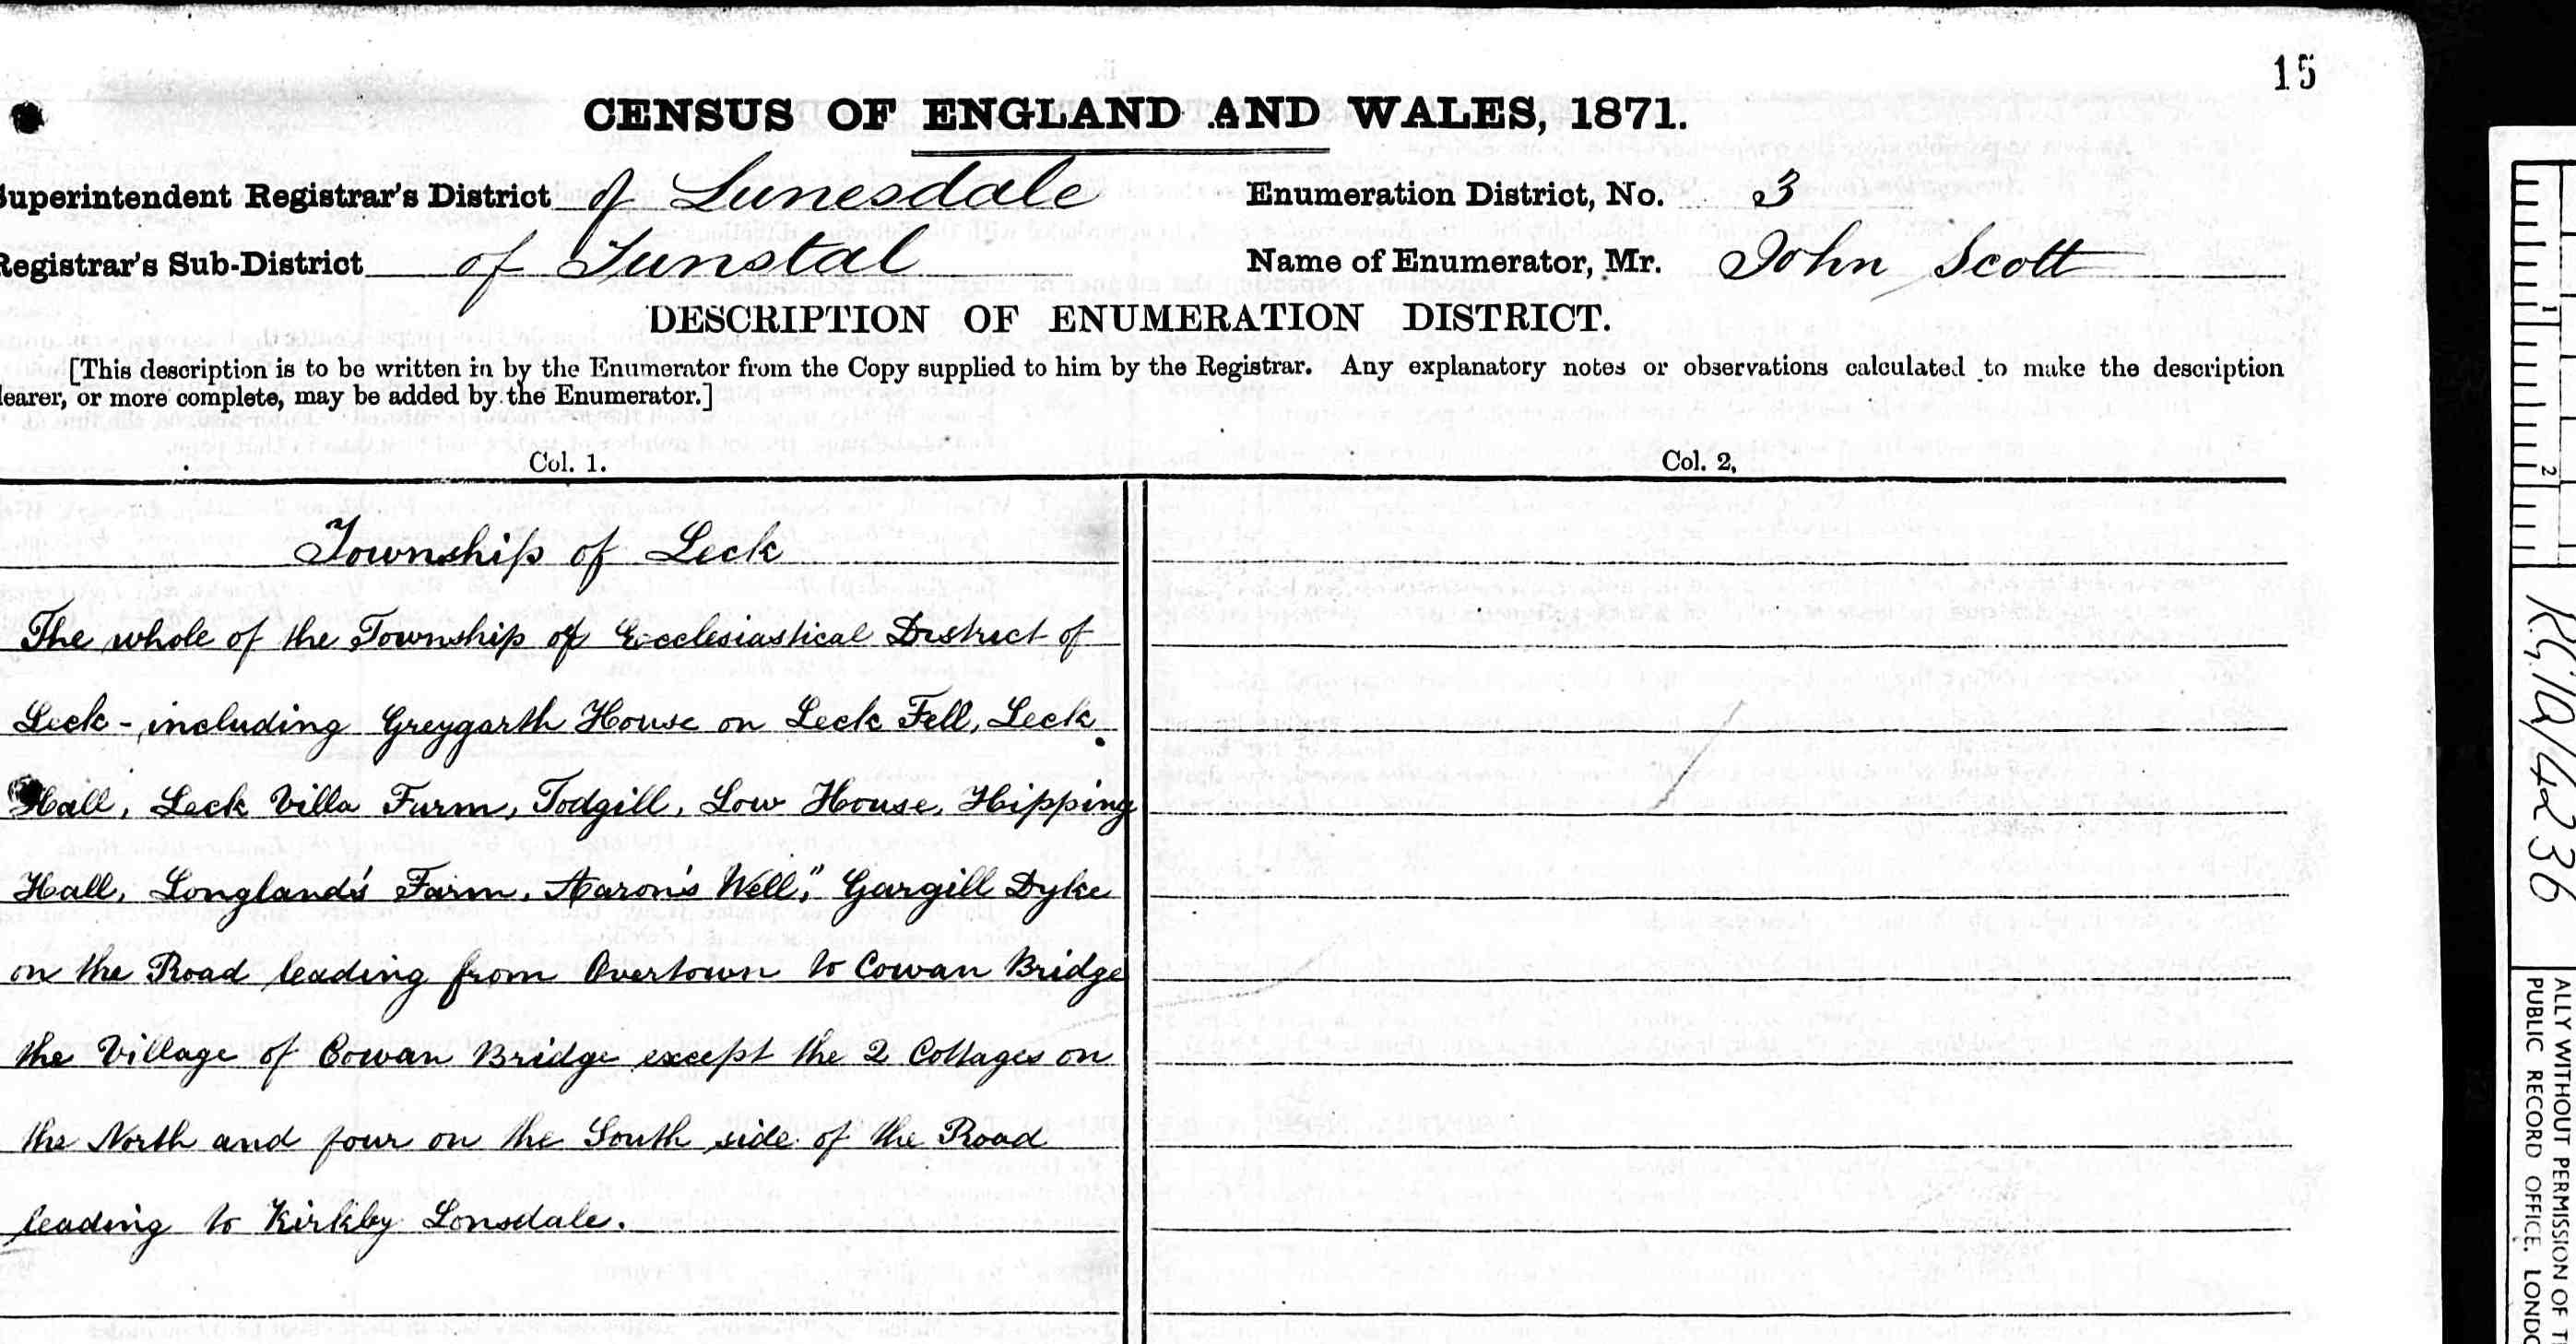 15
CENSUS OF ENGLAND AND WALES, 1871.
Superintendent Registrar's District of Lunesdale
Enumeration District, No. 3
Registrar's Sub-District of Tunstal
Name of Enumerator, Mr. John Scott
DESCRIPTION OF ENUMERATION DISTRICT.
[This description is to be written in by the Enumerator from the Copy supplied to him by the Registrar. Any explanatory notes or observations calculated to make the description
learer, or more complete, may be added by the Enumerator.]
Col. 1.
Col. 2.
Township of Leck
The whole of the Township of Ecclesiastical District of
Leck - including Greygarth House on Leck Fell, Leck
Hall, Leck Villa Farm, Todgill, Low House, Hipping
Hall, Longland's Farm, Aaron's Well," Gargill Dyke
on the Road leading from Overtown to Cowan Bridge
the Village of Cowan Bridge except the 2 Cottages on
the North and four on the South side of the Road
leading to Kirkby Lonsdale.
1
2
R.G. 10/4236
ALLY WITHOUT PERMISSION OF T
PUBLIC RECORD OFFICE, LONDO